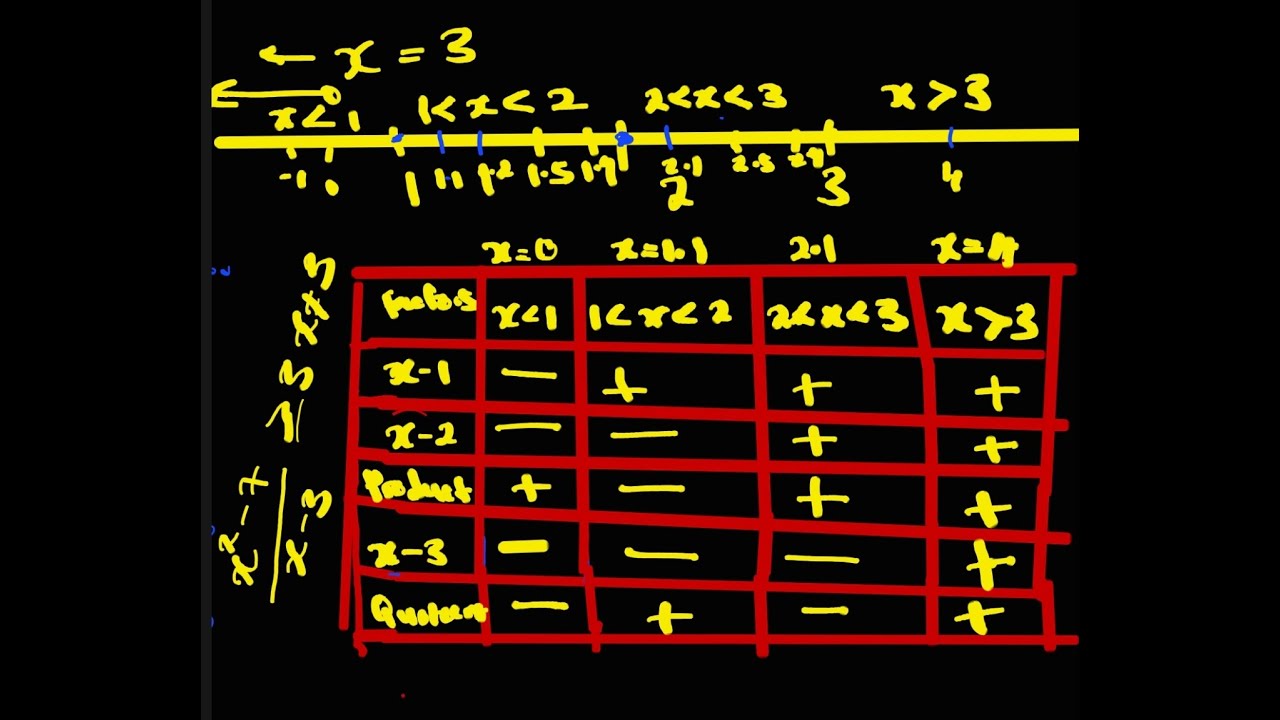 ← x = 3
x < 1 1 < x < 2 2 < x < 3 x > 3
-1 0 1 1.1 1.2 1.5 1.9 2.1 2.5 2.9 4
2 3
x=0 x=1.1 2.1 x=4
Factors x<1 1<x<2 2<x<3 x>3
x-1 − + + +
x-2 − − + +
Product + − + +
x-3 − − − +
Quotient − + − +
x²-7
x-3
≥ 3 x≠3